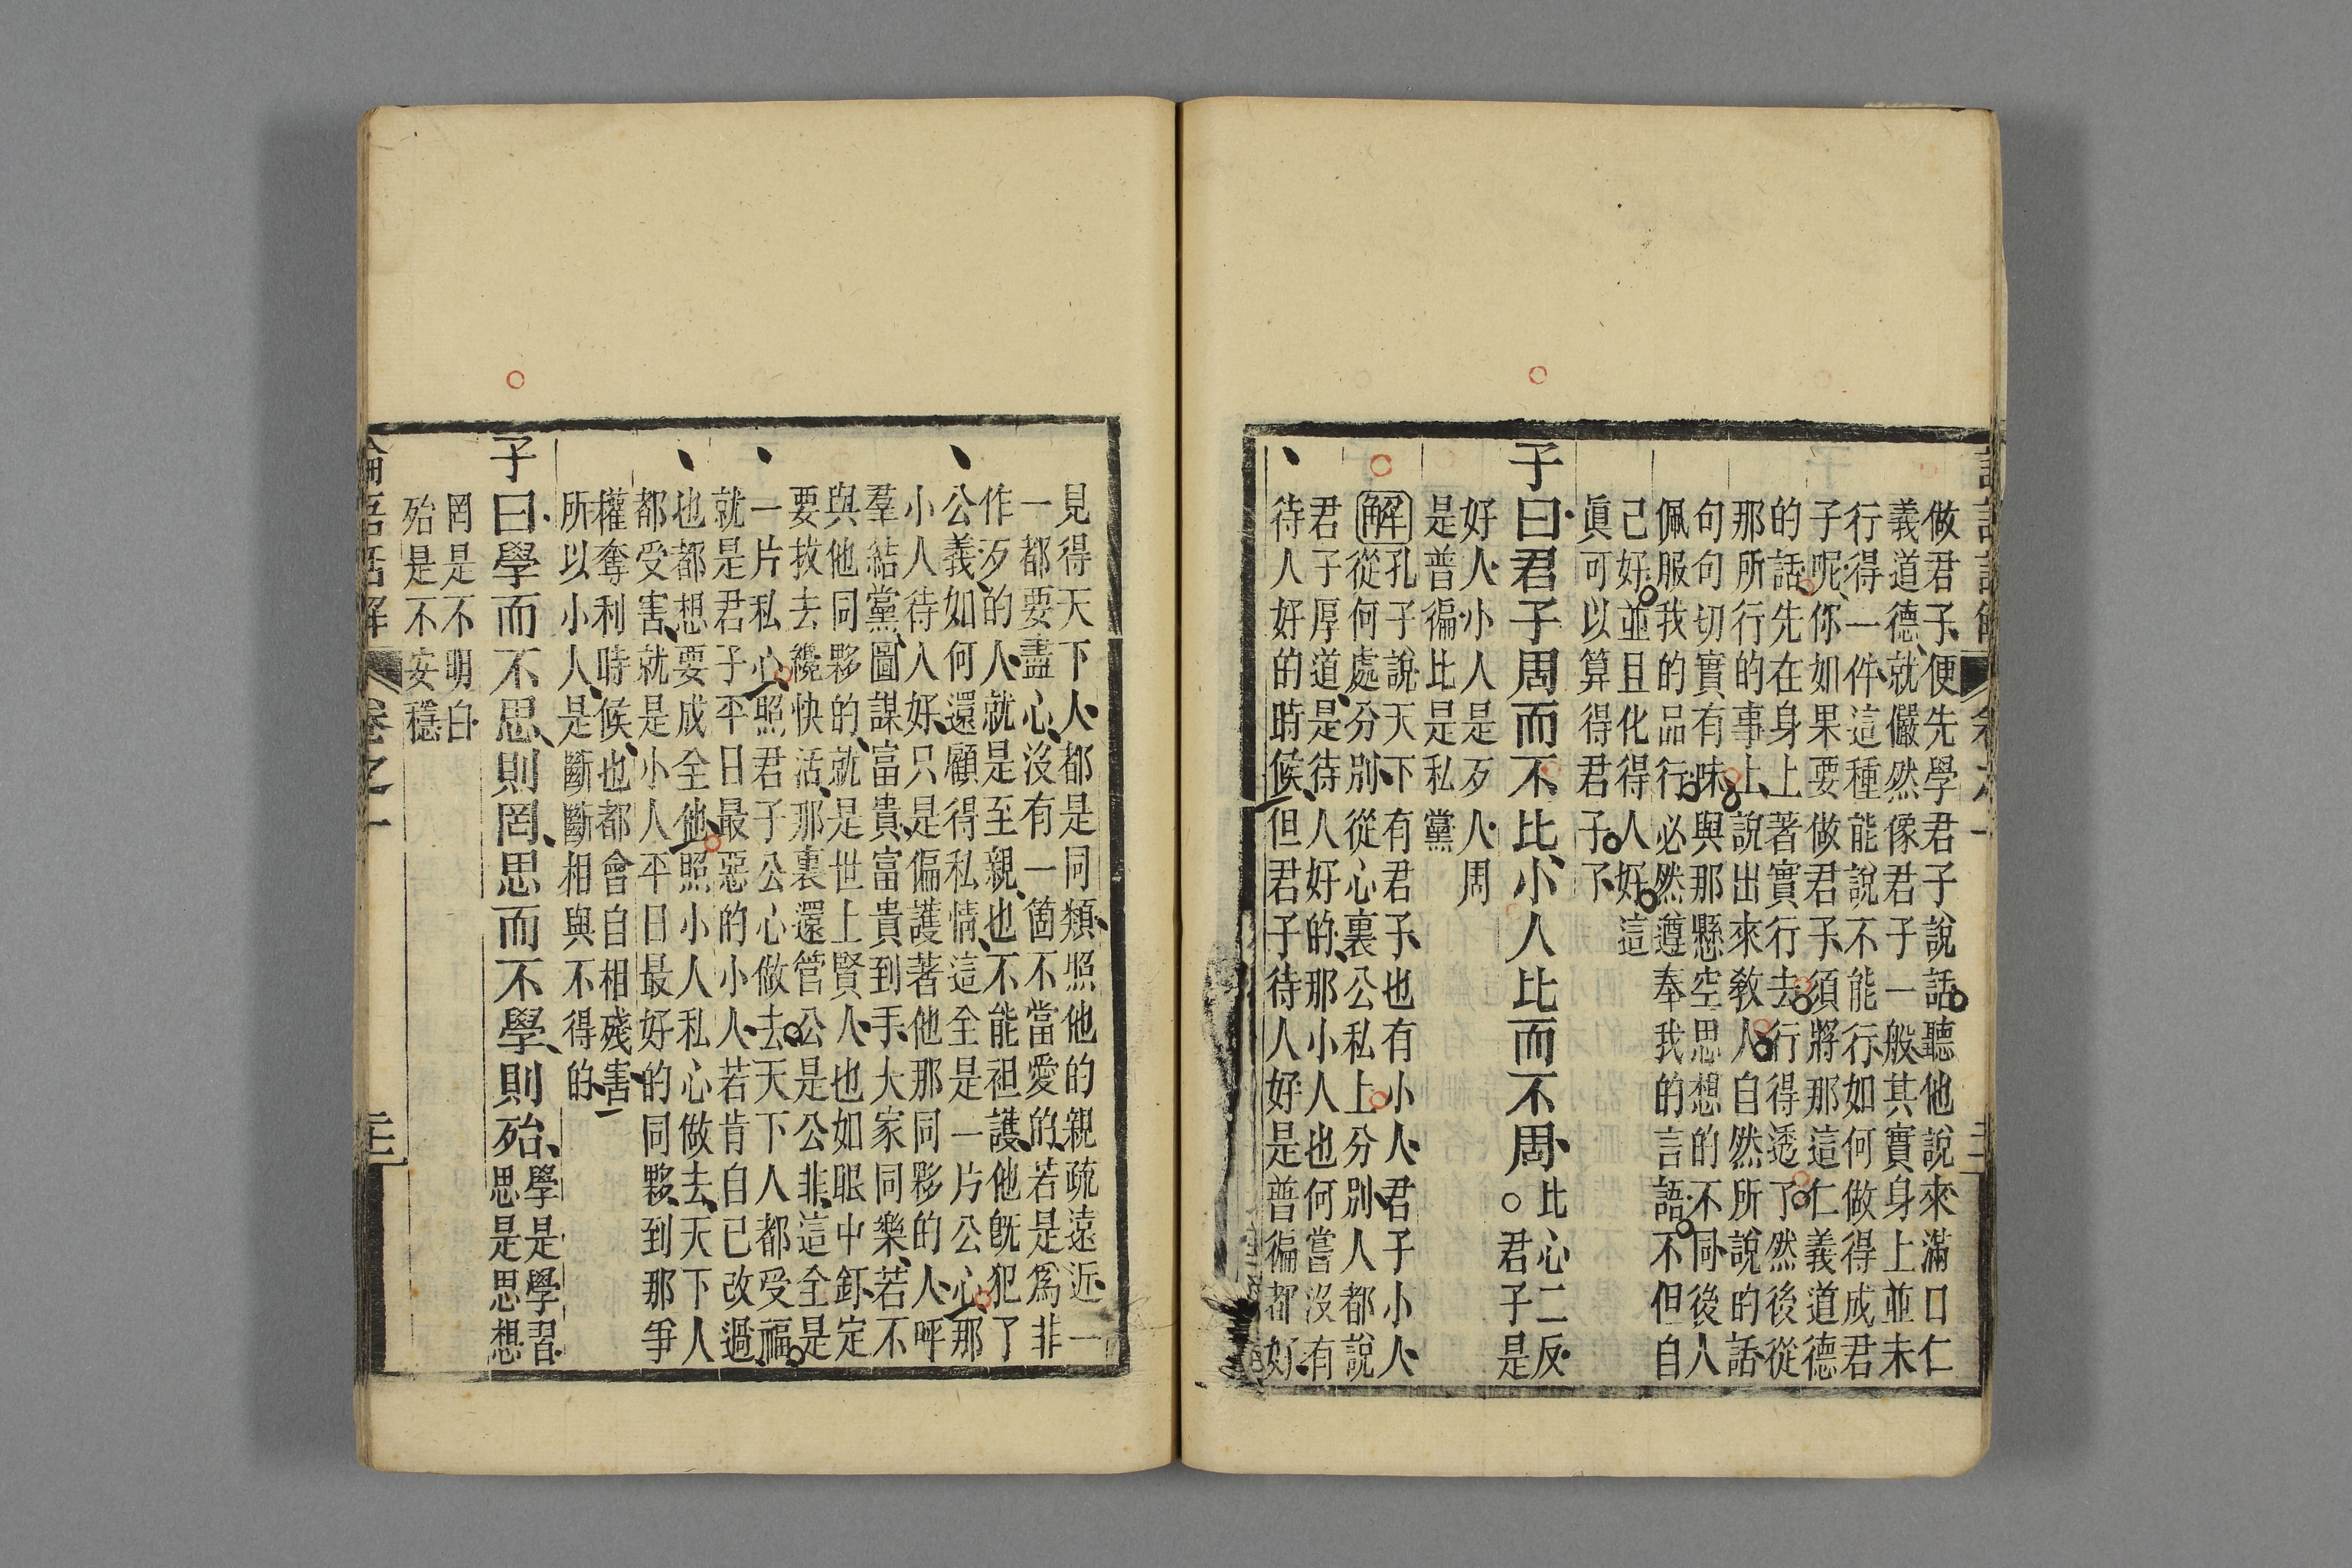 做君子、便先學君子說話聽他說來滿口仁
義道德、就儼然像君子一般其實身上並未
行得一件、這種能說不能行、如何做得成君
子呢、你如果要做君子、須將那這仁義道德
的話先在身上著實行去行得透了然後從
那所行的事上、說出來教人自然所說的話
句句切實有味與那懸空思想的不同、後人
佩服我的品行必然遵奉我的言語、不但自
己好並且化得人好、這
眞可以算得君子了
子曰君子周而不比小人比而不周
比心二反
○君子是
好人小人是歹人周
是普徧比是私黨
解孔子說天下有君子、也有小人、君子小人
從何處分別、從心裏公私上分別、人都說
君子厚道、是待人好的、那小人也何嘗沒有
待人好的時候、但君子待人好是普徧都好、
見得天下人都是同類、照他的親疏遠近、一
一都要盡心、沒有一箇不當愛的、若是爲非
作歹的人、就是至親、也不能袒護、他旣犯了
公義、如何還顧得私情、這全是一片公心、那
小人待人好、只是偏護著他那同夥的人、呼
羣結黨、圖謀富貴、富貴到手、大家同樂、若不
與他同夥的、就是世上賢人、也如眼中釘、定
要拔去纔快活、那裏還管公是公非、這全是
一片私心、照君子公心做去天下人都受福、
就是君子平日最惡的小人、若肯自己改過
也都想要成全他、照小人私心做去、天下人
都受害、就是小人平日最好的同夥、到那爭
權奪利時候、也都會自相殘害、
所以小人、是斷斷相與不得的、
子曰學而不思、則罔、思而不學、則殆、
學是學習
思是思想
罔是不明白
殆是不安穩
卷之一